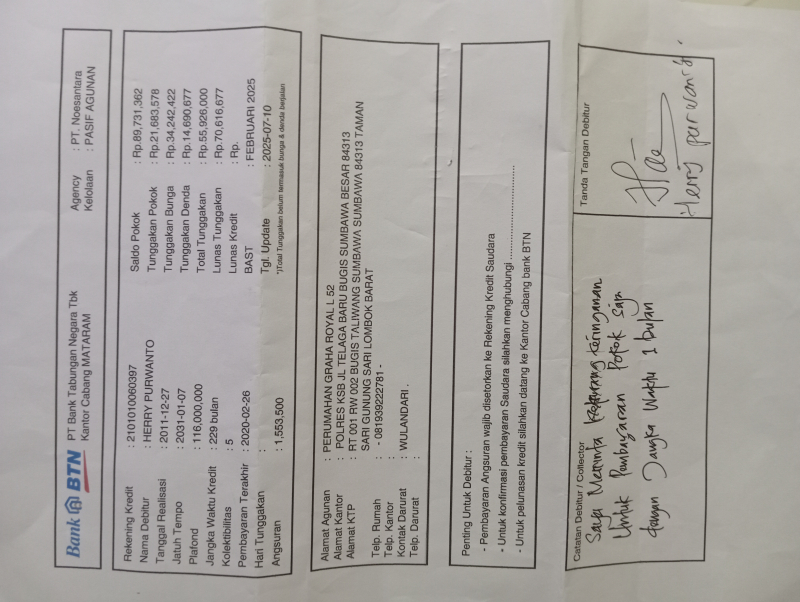 Bank BTN
PT Bank Tabungan Negara Tbk
Kantor Cabang MATARAM
Agency : PT. Noesantara
Kelolaan : PASIF AGUNAN
Rekening Kredit : 2101010060397
Nama Debitur : HERRY PURWANTO
Tanggal Realisasi : 2011-12-27
Jatuh Tempo : 2031-01-07
Plafond : 116,000,000
Jangka Waktu Kredit : 229 bulan
Kolektibilitas : 5
Pembayaran Terakhir : 2020-02-26
Hari Tunggakan :
Angsuran : 1,553,500
Saldo Pokok : Rp.89,731,362
Tunggakan Pokok : Rp.21,683,578
Tunggakan Bunga : Rp.34,242,422
Tunggakan Denda : Rp.14,690,677
Total Tunggakan : Rp.55,926,000
Lunas Tunggakan : Rp.70,616,677
Lunas Kredit : Rp.
BAST : FEBRUARI 2025
Tgl. Update : 2025-07-10
*)Total Tunggakan belum termasuk bunga & denda berjalan
Alamat Agunan : PERUMAHAN GRAHA ROYAL L 52
Alamat Kantor : POLRES KSB JL TELAGA BARU BUGIS SUMBAWA BESAR 84313
Alamat KTP : RT 001 RW 002 BUGIS TALIWANG SUMBAWA SUMBAWA 84313 TAMAN
SARI GUNUNG SARI LOMBOK BARAT
Telp. Rumah : - 081939222781 -
Telp. Kantor :
Kontak Darurat : WULANDARI .
Telp. Darurat :
Penting Untuk Debitur :
- Pembayaran Angsuran wajib disetorkan ke Rekening Kredit Saudara
- Untuk konfirmasi pembayaran Saudara silahkan menghubungi ..............................
- Untuk pelunasan kredit silahkan datang ke Kantor Cabang bank BTN
Catatan Debitur / Collector
Saya Meminta keringanan
Untuk Pembayaran Pokok saja
dengan Jangka Waktu 1 bulan
Tanda Tangan Debitur
Herry purwanto